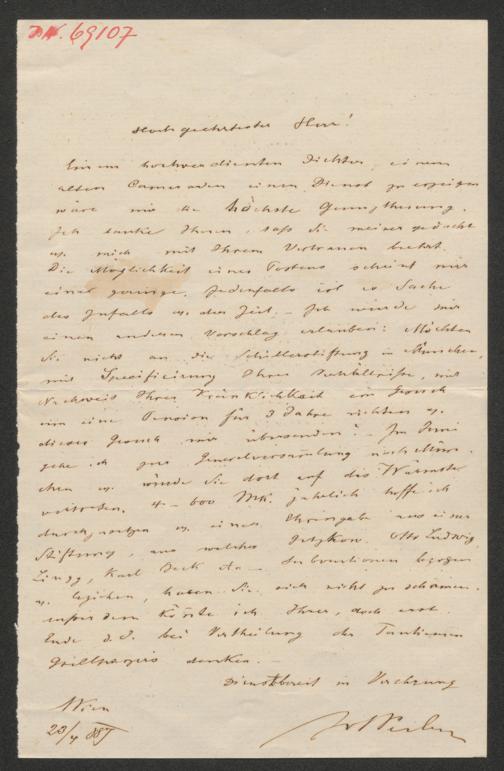 J.N. 69107
Hochgeehrtester Herr!
Einem hochverdienten Dichter, einem
alten Cameraden einen Dienst zu erzeigen
wäre mir die höchste Genugthuung.
Ich danke Ihnen, daß Sie meiner gedacht
u. mich mit Ihrem Vertrauen beehrt.
Die Möglichkeit eines Postens scheint mir
eine geringe. Jedenfalls ist es Sache
des Zufalls u. der Zeit. – Ich würde mir
einen anderen Vorschlag erlauben: Möchten
Sie nicht an die Schillerstiftung in München,
mit Specificirung Ihrer Verhältniße, mit
Nachweis Ihrer Kränklichkeit ein Gesuch
um eine Pension für 3 Jahre richten u.
dieses Gesuch mir übersenden? – Im Juni
gehe ich zur Generalversammlung nach Mün-
chen u. würde Sie dort auf das Wärmste
vertreten. 4 – 600 Mk. jährlich hoffe ich
durchzusetzen u. einer Ehrengabe aus einer
Stiftung, aus welcher Gutzkow, Otto Ludwig,
Lingg, Karl Beck etc – Subventionen bezogen
u. beziehen, haben Sie sich nicht zu schämen.
Außerdem könnte ich Ihrer, doch erst
Ende d. J. bei Vertheilung der Tantiemen
Grillparzers denken. –
Dienstbereit in Verehrung
Wien
23/4 887